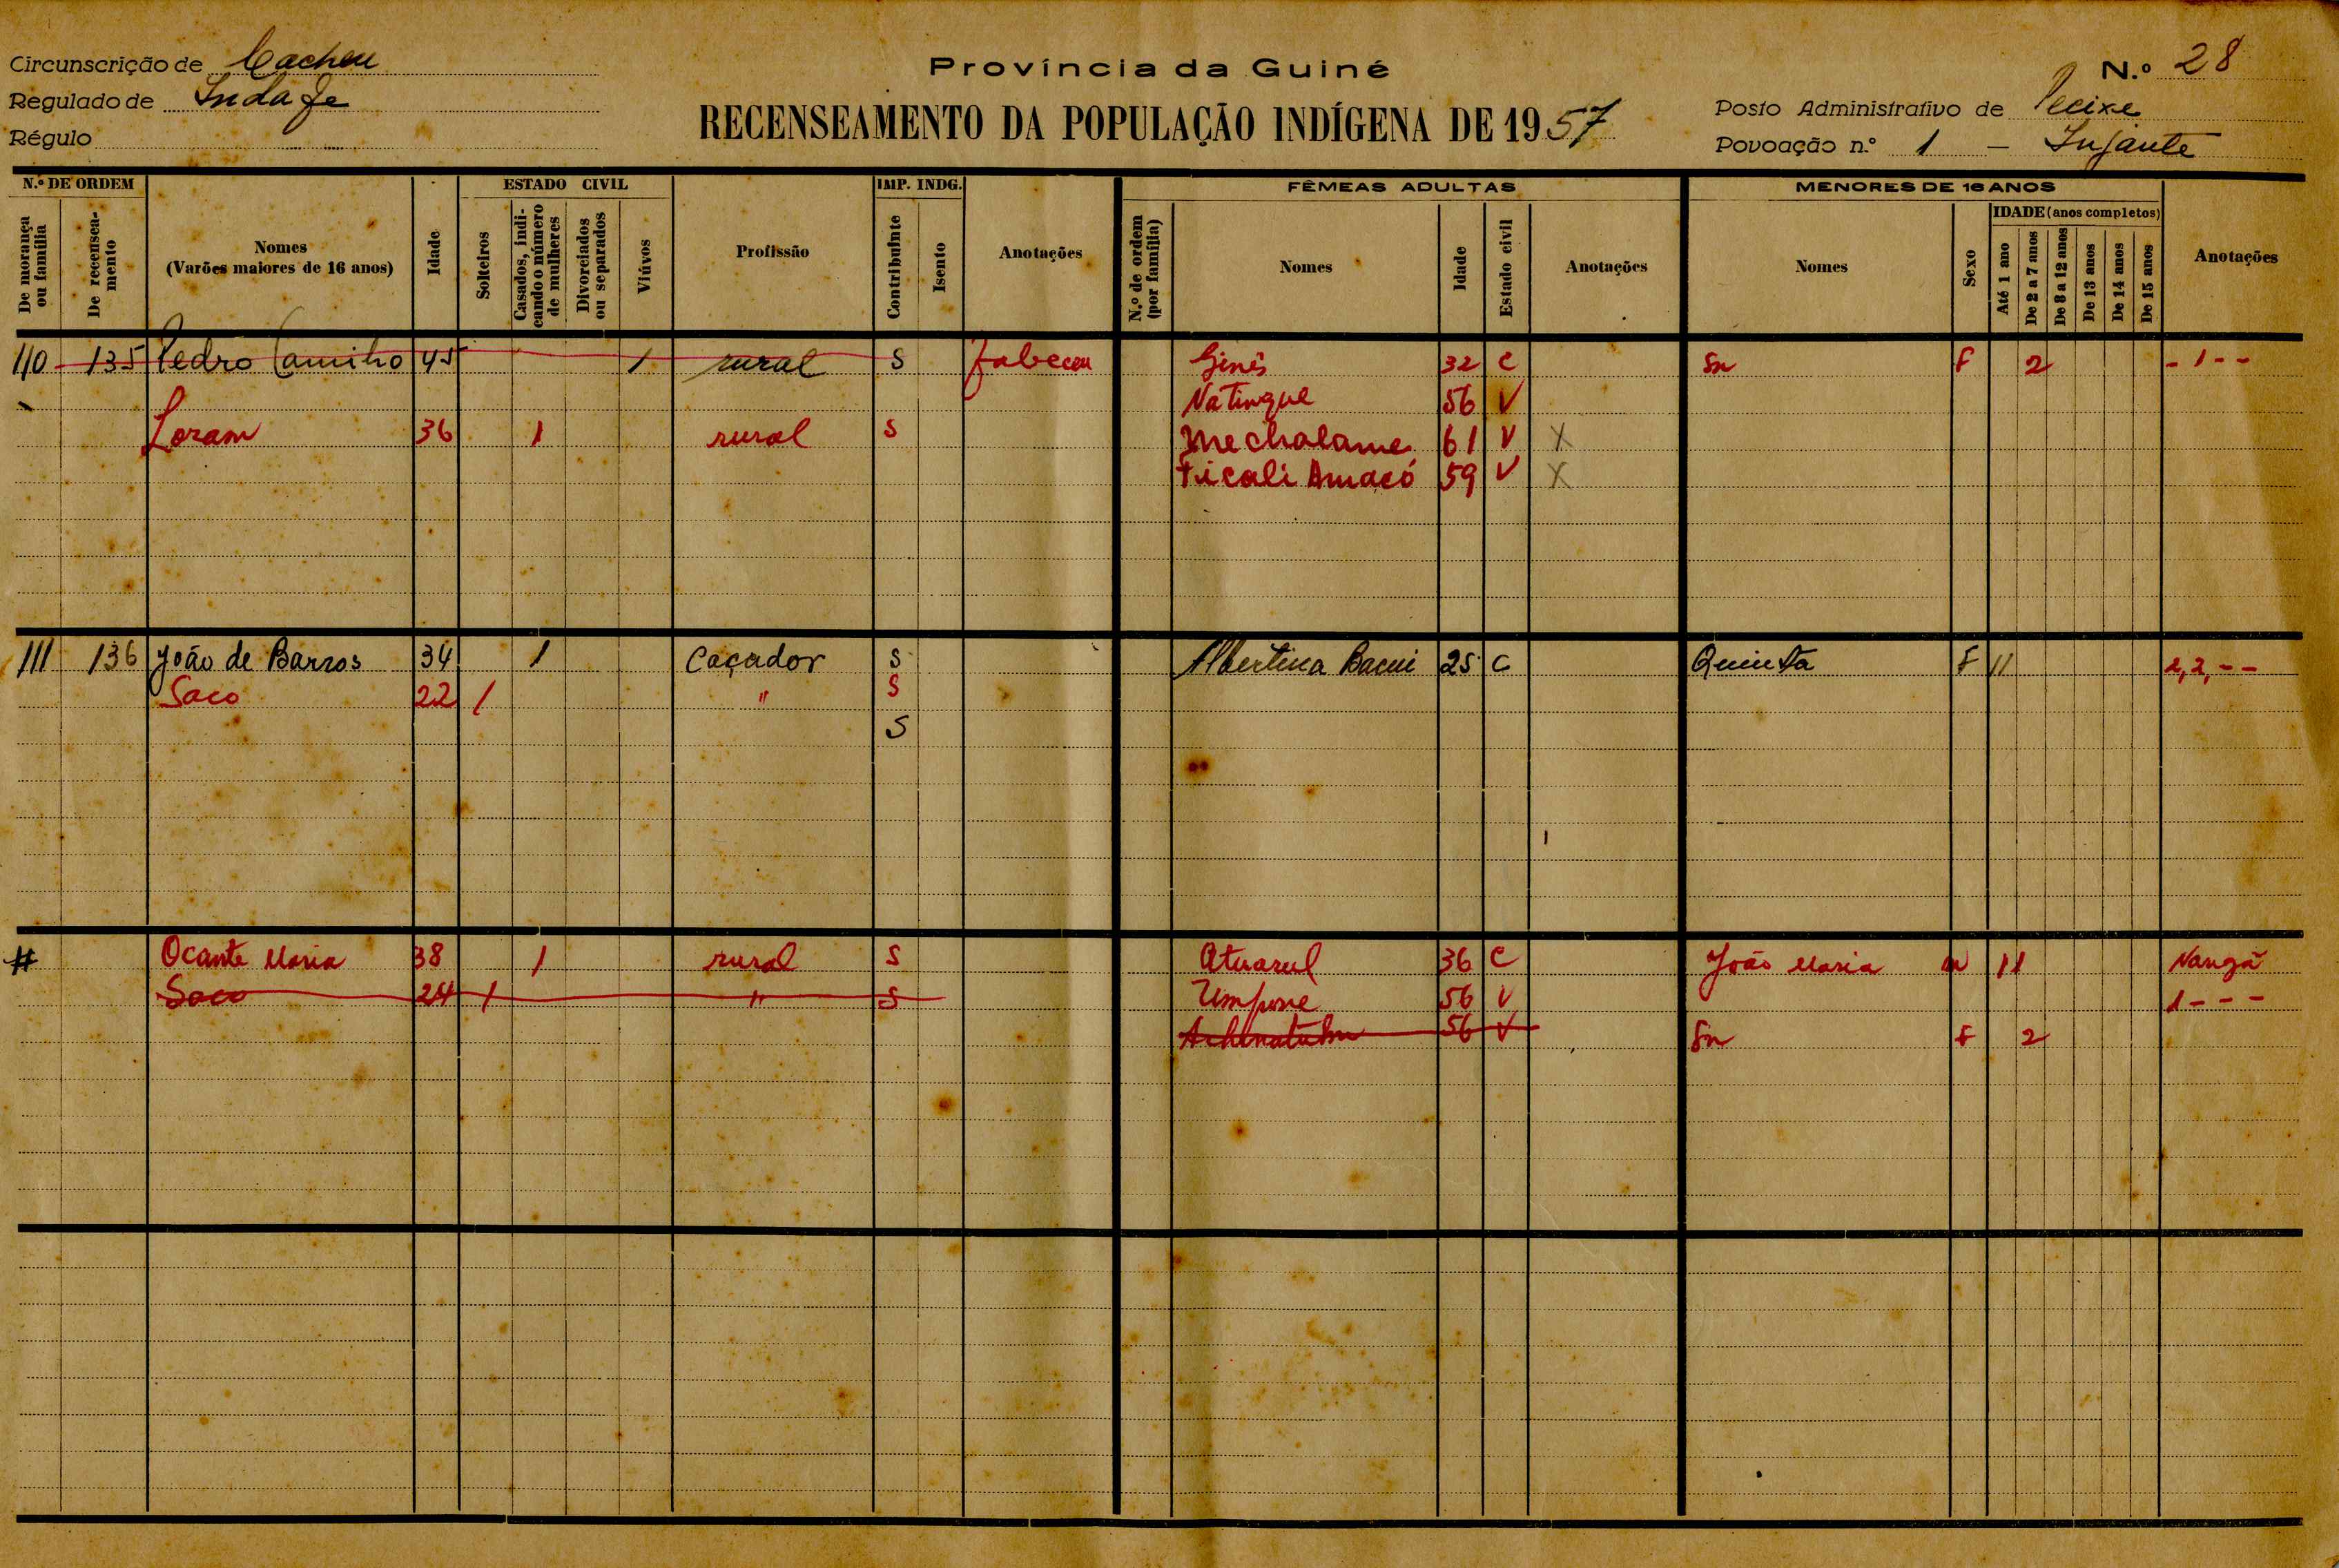 Circunscrição de Cacheu
Província da Guiné
N.º 28
Regulado de Indafe
RECENSEAMENTO DA POPULAÇÃO INDÍGENA DE 1957
Posto Administrativo de Pecixe
Régulo
Povoação n.º 1 - Injante
N.º DE ORDEM
De morança ou família
De recenseamento
Nomes (Varões maiores de 16 anos)
Idade
ESTADO CIVIL
Solteiros
Casados, indicando o número de mulheres
Divorciados ou separados
Viúvos
Profissão
IMP. INDG.
Contribuinte
Isento
Anotações
FÊMEAS ADULTAS
N.º de ordem (por família)
Nomes
Idade
Estado civil
Anotações
MENORES DE 16 ANOS
Nomes
Sexo
IDADE (anos completos)
Até 1 ano
De 2 a 7 anos
De 8 a 12 anos
De 13 anos
De 14 anos
De 15 anos
Anotações
110 135 Pedro Camilho 45 1 rural S Ginês 32 C Sn F 2 - 1 - -
Natingue 56 V
Loram 36 1 rural S Mechalame 61 V X
Ficali Amacó 59 V X
111 136 João de Barros 34 1 Caçador S Albertina Bacui 25 C Quinta F 11 2, 2, - -
Saco 22 1 " S
S
# Ocante Maria 38 1 rural S Atuarul 36 C João Maria 11 Nangã
Saco 24 1 " S Umpone 56 V 1 - - -
56 V Sn F 2